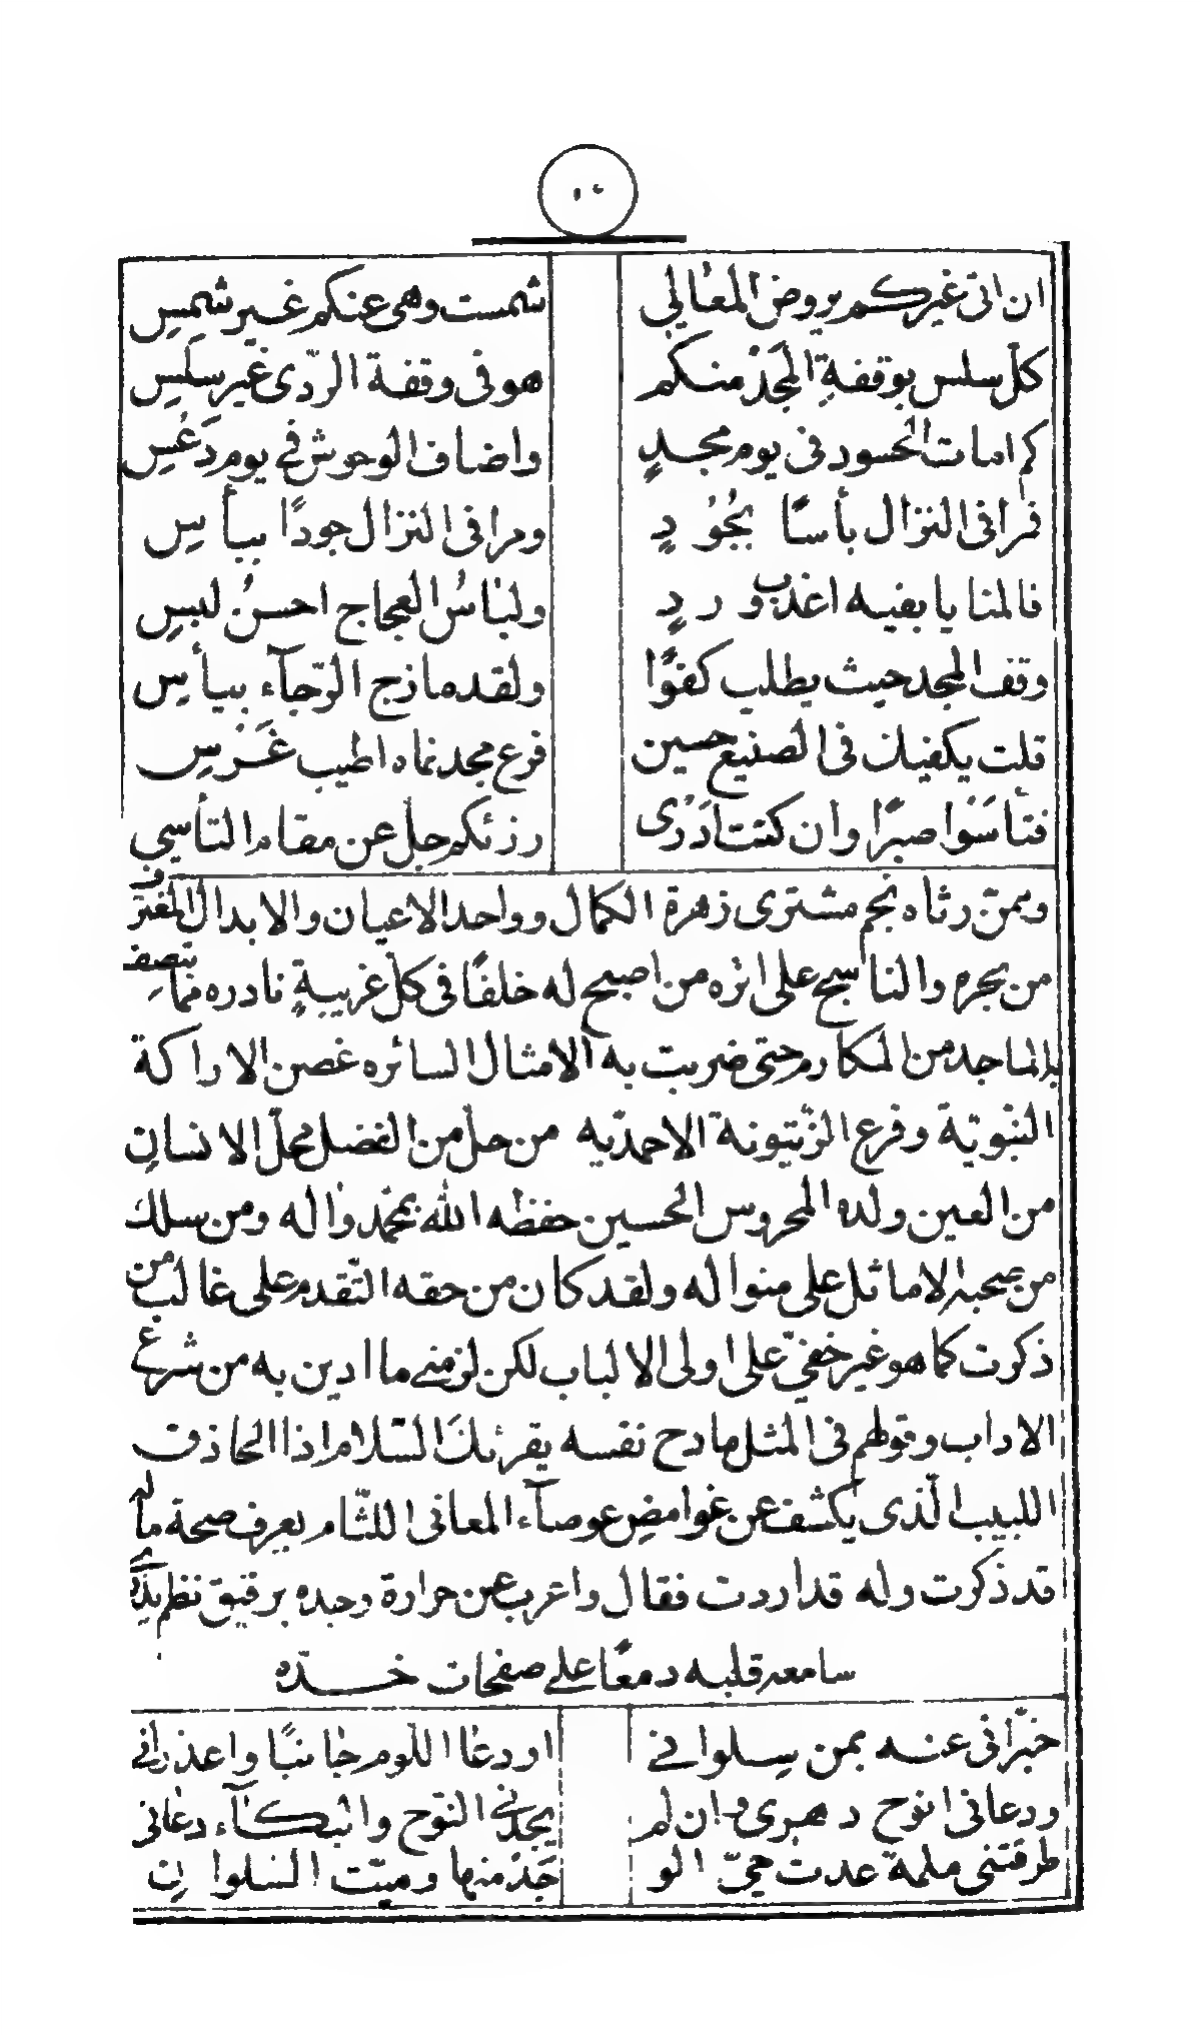 ان اتى غيركم يروض المعالي شمست وهى عنكم غير شمس
كل سلس بوقفة المجد منكم هو فى وقفة الردى غير سلس
كم امات الحسود فى يوم مجد واضاف الوحوش في يوم دعس
فرا فى النزال بأسا بجود ومرا فى النزال جودا ببأس
فالمنايا بفيه اعذب ورد ولباس العجاج احسن لبس
وقف المجد حيث يطلب كفوا ولقد مازج الرجآء بيأس
قلت يكفيك فى الصنيع حسين فرع مجد نماه اطيب غرس
فتأسوا صبرا وان كنت ادرى رزئكم جل عن مقام التأسي
وممن رثاه نجم مشترى زهرة الكمال وواحد الاعيان والابدال المغترف
من بحره والناسج على اثره من اصبح له خلفا فى كل غريبة نادره متصف
بالماجد من المكارم حتى ضربت به الامثال السائره غصن الاراكة
النبوية وفرع الزيتونة الاحمديه من حل من الفضل محل الانسان
من العين ولده المحروس الحسين حفظه الله بمحمد واله ومن سلك
من صحبه الاماثل على منواله ولقد كان من حقه التقدم على غالب من
ذكرت كما هو غير خفي على اولى الالباب لكن لزمني ما ادين به من شرع
الاداب وقولهم فى المثل مادح نفسه يقرئك السلام اذا الحاذق
اللبيب الذى يكشف عن غوامض عوصآء المعانى اللثام يعرف صحة ما له
قد ذكرت وله قد اردت فقال واعرب عن حرارة وجده برقيق نظم
سامعه قلبه دمعا على صفحات خده
خبرانى عنه بمن سلواني اودعا اللوم جانبا واعذرانى
ودعانى انوح دهرى وان لم يجدني النوح والبكآء دعانى
طرقتنى ملمة عدت حى الو جد منها وميت السلوان